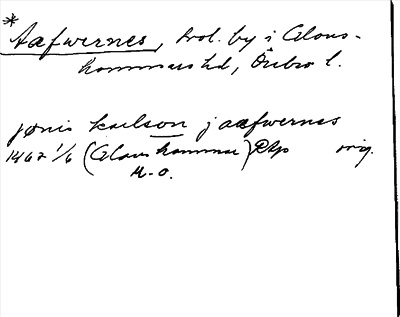 *
Aafwernes, prol. by i Glans-
hammars hd, Örebro l.
jønis karlson j aafwernes
1462 1/6 (Glanshammar) RAp orig.
U. O.